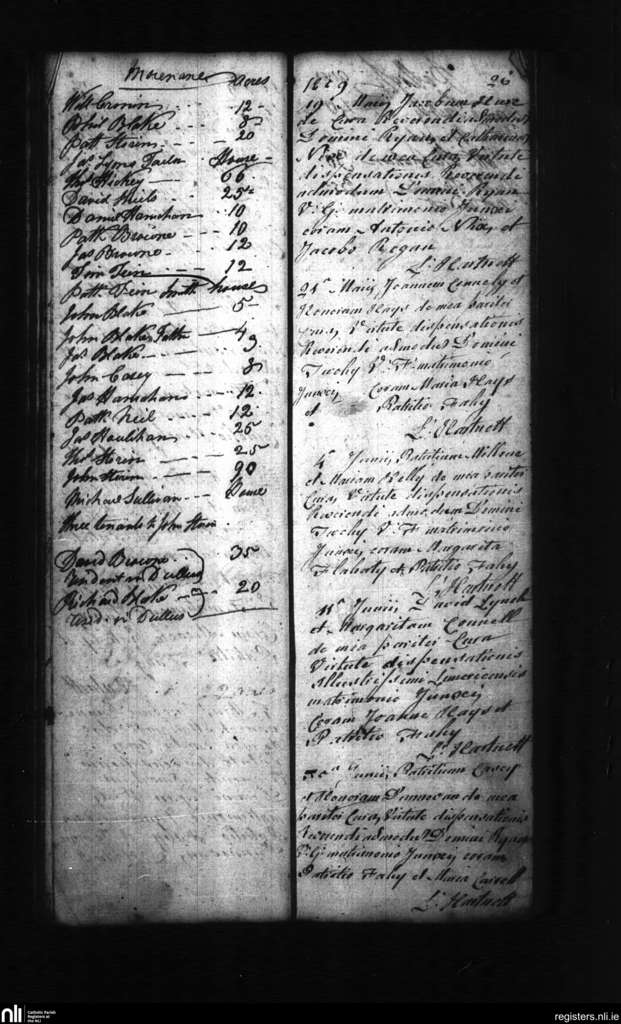 Morenane Acres
Will Cronin 12
Robt Blake 8
Patt Storin 20
Jas Lyons Taylor House
Thos Hickey 66
David Shiels 25
Daniel Hanrahan 10
Patk Browne 10
Jas Browne 12
Tim Fein 12
Patk Fein Smith house
John Blake 5
John Blake Fathr 4
Jas Blake 3
John Casey 8
Jas Hanrahan 12
Patk Neil 12
Jas Houlihan 25
Thos Storin 25
John Storin 90
Michael Sullivan
three tenants to John Storin
David Browne 35
Resident in Dullus
Richard Blake 20
Resid. in Dullus
26
19 Maii, Jacobum
de Cura Reverendi
Domini Ryan, et Catharinam
de mea Cura, Virtute
dispensationis Reverendi
admodum Domini Ryan
V. G. matrimonio Junxi
coram Antonio et
Jacobo Regan
L. Hartnett
21a Maii, Joannem Connely et
Honoriam Hays de mea pariter
Cura, Virtute dispensationis
Reverendi admodum Domini
Tuohy V. F. matrimonio
Junxi, Coram Maria Hays
et Patritio Fahy
L. Hartnett
4a Junii, Patritium
et Mariam Kelly de mea pariter
Cura, Virtute dispensationis
Reverendi admodum Domini
Tuohy V. F. matrimonio
Junxi, coram Margarita
Flahaty et Patritio Fahy
L. Hartnett
11a Junii, David Lynch
et Margaritam Connell
de mea pariter Cura
Virtute dispensationis
Illustrissimi Limericensis
matrimonio Junxi
Coram Joanne Hays et
Patritio Fahy
L. Hartnett
Junii, Patritium Casey
et Honoriam Donnovan de mea
pariter Cura, Virtute dispensationis
Reverendi admodum Domini Ryan
V. G. matrimonio Junxi, coram
Patritio Fahy et Maria Carroll
L. Hartnett
nli Catholic Parish
Registers at
the NLI
registers.nli.ie